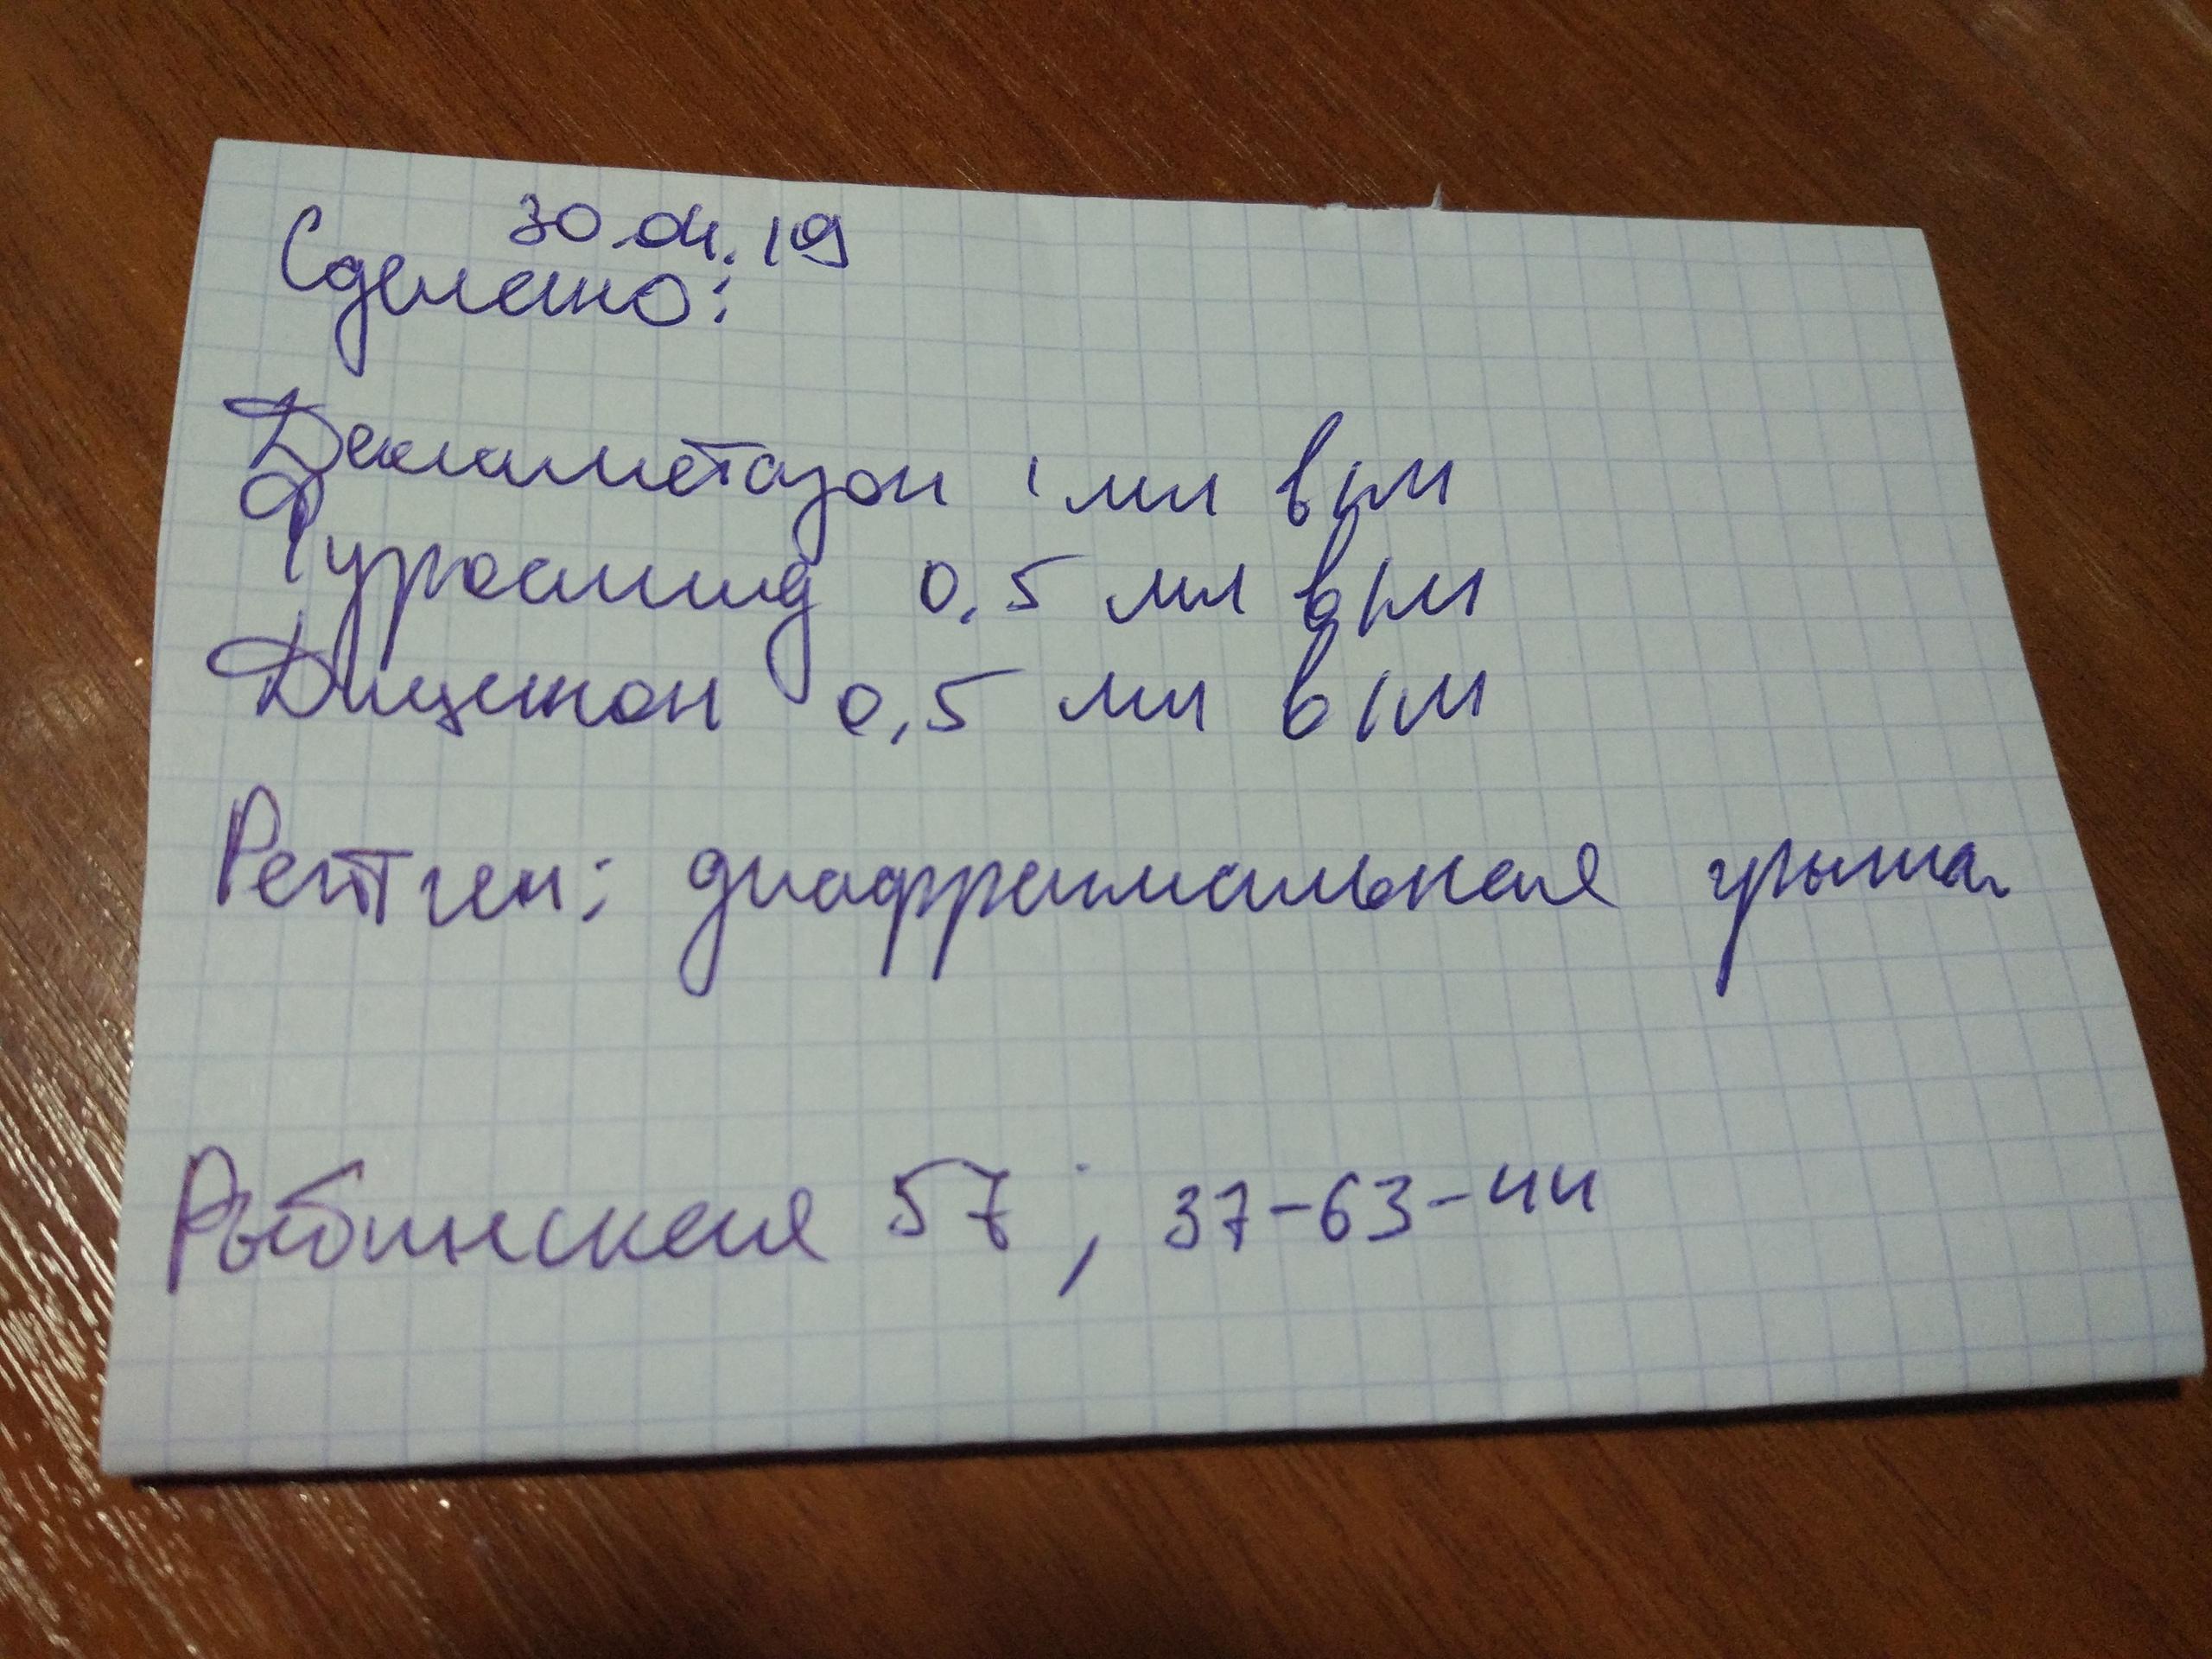 30.04.19
Сделано:
Дексаметазон 1 мл в/м
Фуросемид 0,5 мл в/м
Дицинон 0,5 мл в/м
Рентген: диафрагмальная грыжа
Рыбинская 57; 37-63-44